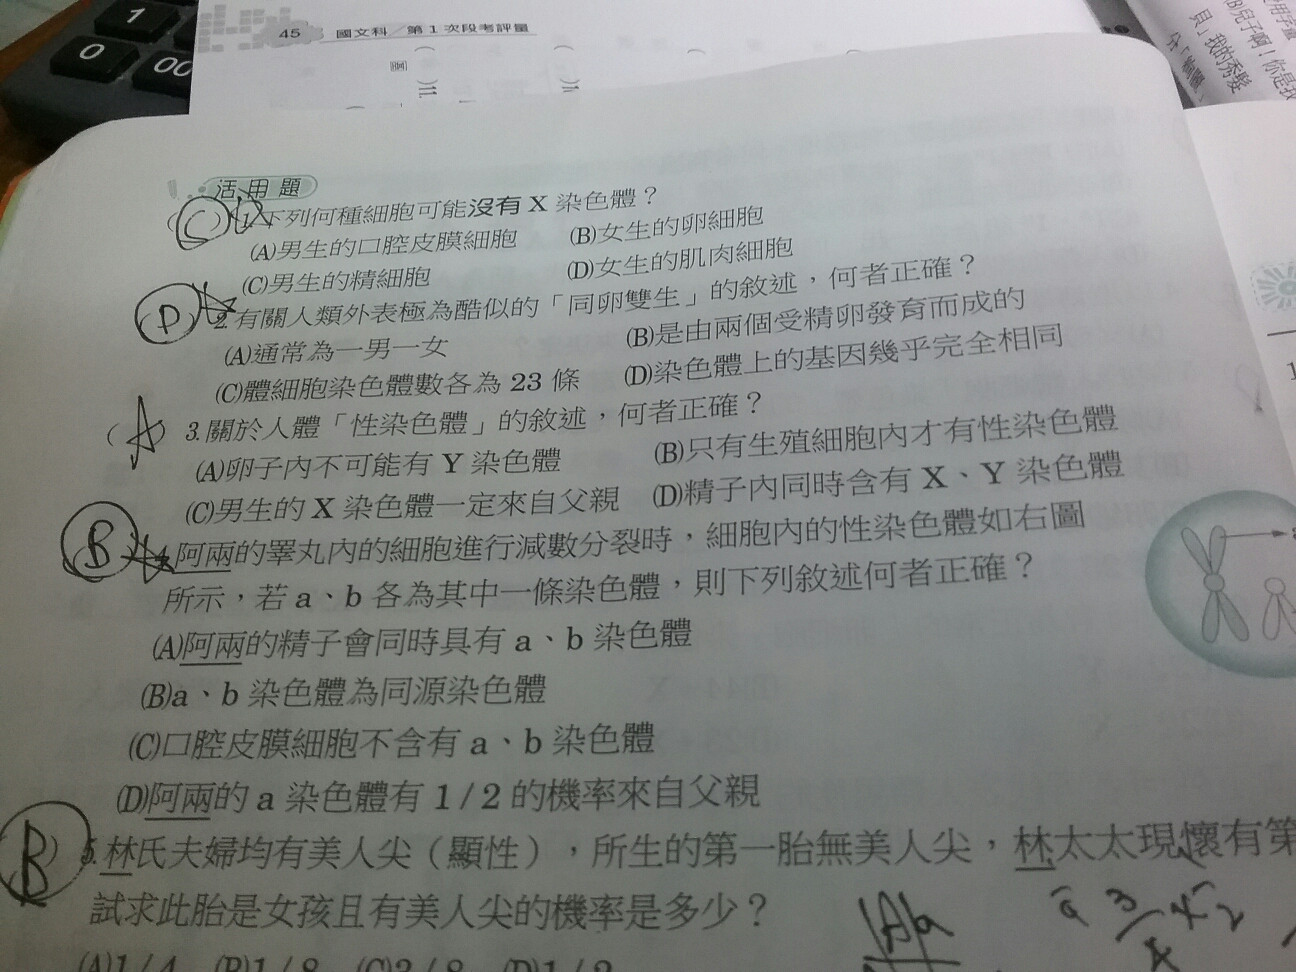 1
0
00
45 國文科／第1次段考評量
活用題
(C) 1.下列何種細胞可能沒有 X 染色體？
(A)男生的口腔皮膜細胞 (B)女生的卵細胞
(C)男生的精細胞 (D)女生的肌肉細胞
(D) 2.有關人類外表極為酷似的「同卵雙生」的敘述，何者正確？
(A)通常為一男一女 (B)是由兩個受精卵發育而成的
(C)體細胞染色體數各為 23 條 (D)染色體上的基因幾乎完全相同
(A) 3.關於人體「性染色體」的敘述，何者正確？
(A)卵子內不可能有 Y 染色體 (B)只有生殖細胞內才有性染色體
(C)男生的 X 染色體一定來自父親 (D)精子內同時含有 X、Y 染色體
(B) 4.阿兩的睪丸內的細胞進行減數分裂時，細胞內的性染色體如右圖
所示，若 a、b 各為其中一條染色體，則下列敘述何者正確？
(A)阿兩的精子會同時具有 a、b 染色體
(B)a、b 染色體為同源染色體
(C)口腔皮膜細胞不含有 a、b 染色體
(D)阿兩的 a 染色體有 1/2 的機率來自父親
(B) 5.林氏夫婦均有美人尖（顯性），所生的第一胎無美人尖，林太太現懷有第
試求此胎是女孩且有美人尖的機率是多少？
(A)1/4 (B)1/8 (C)3/8 (D)1/2